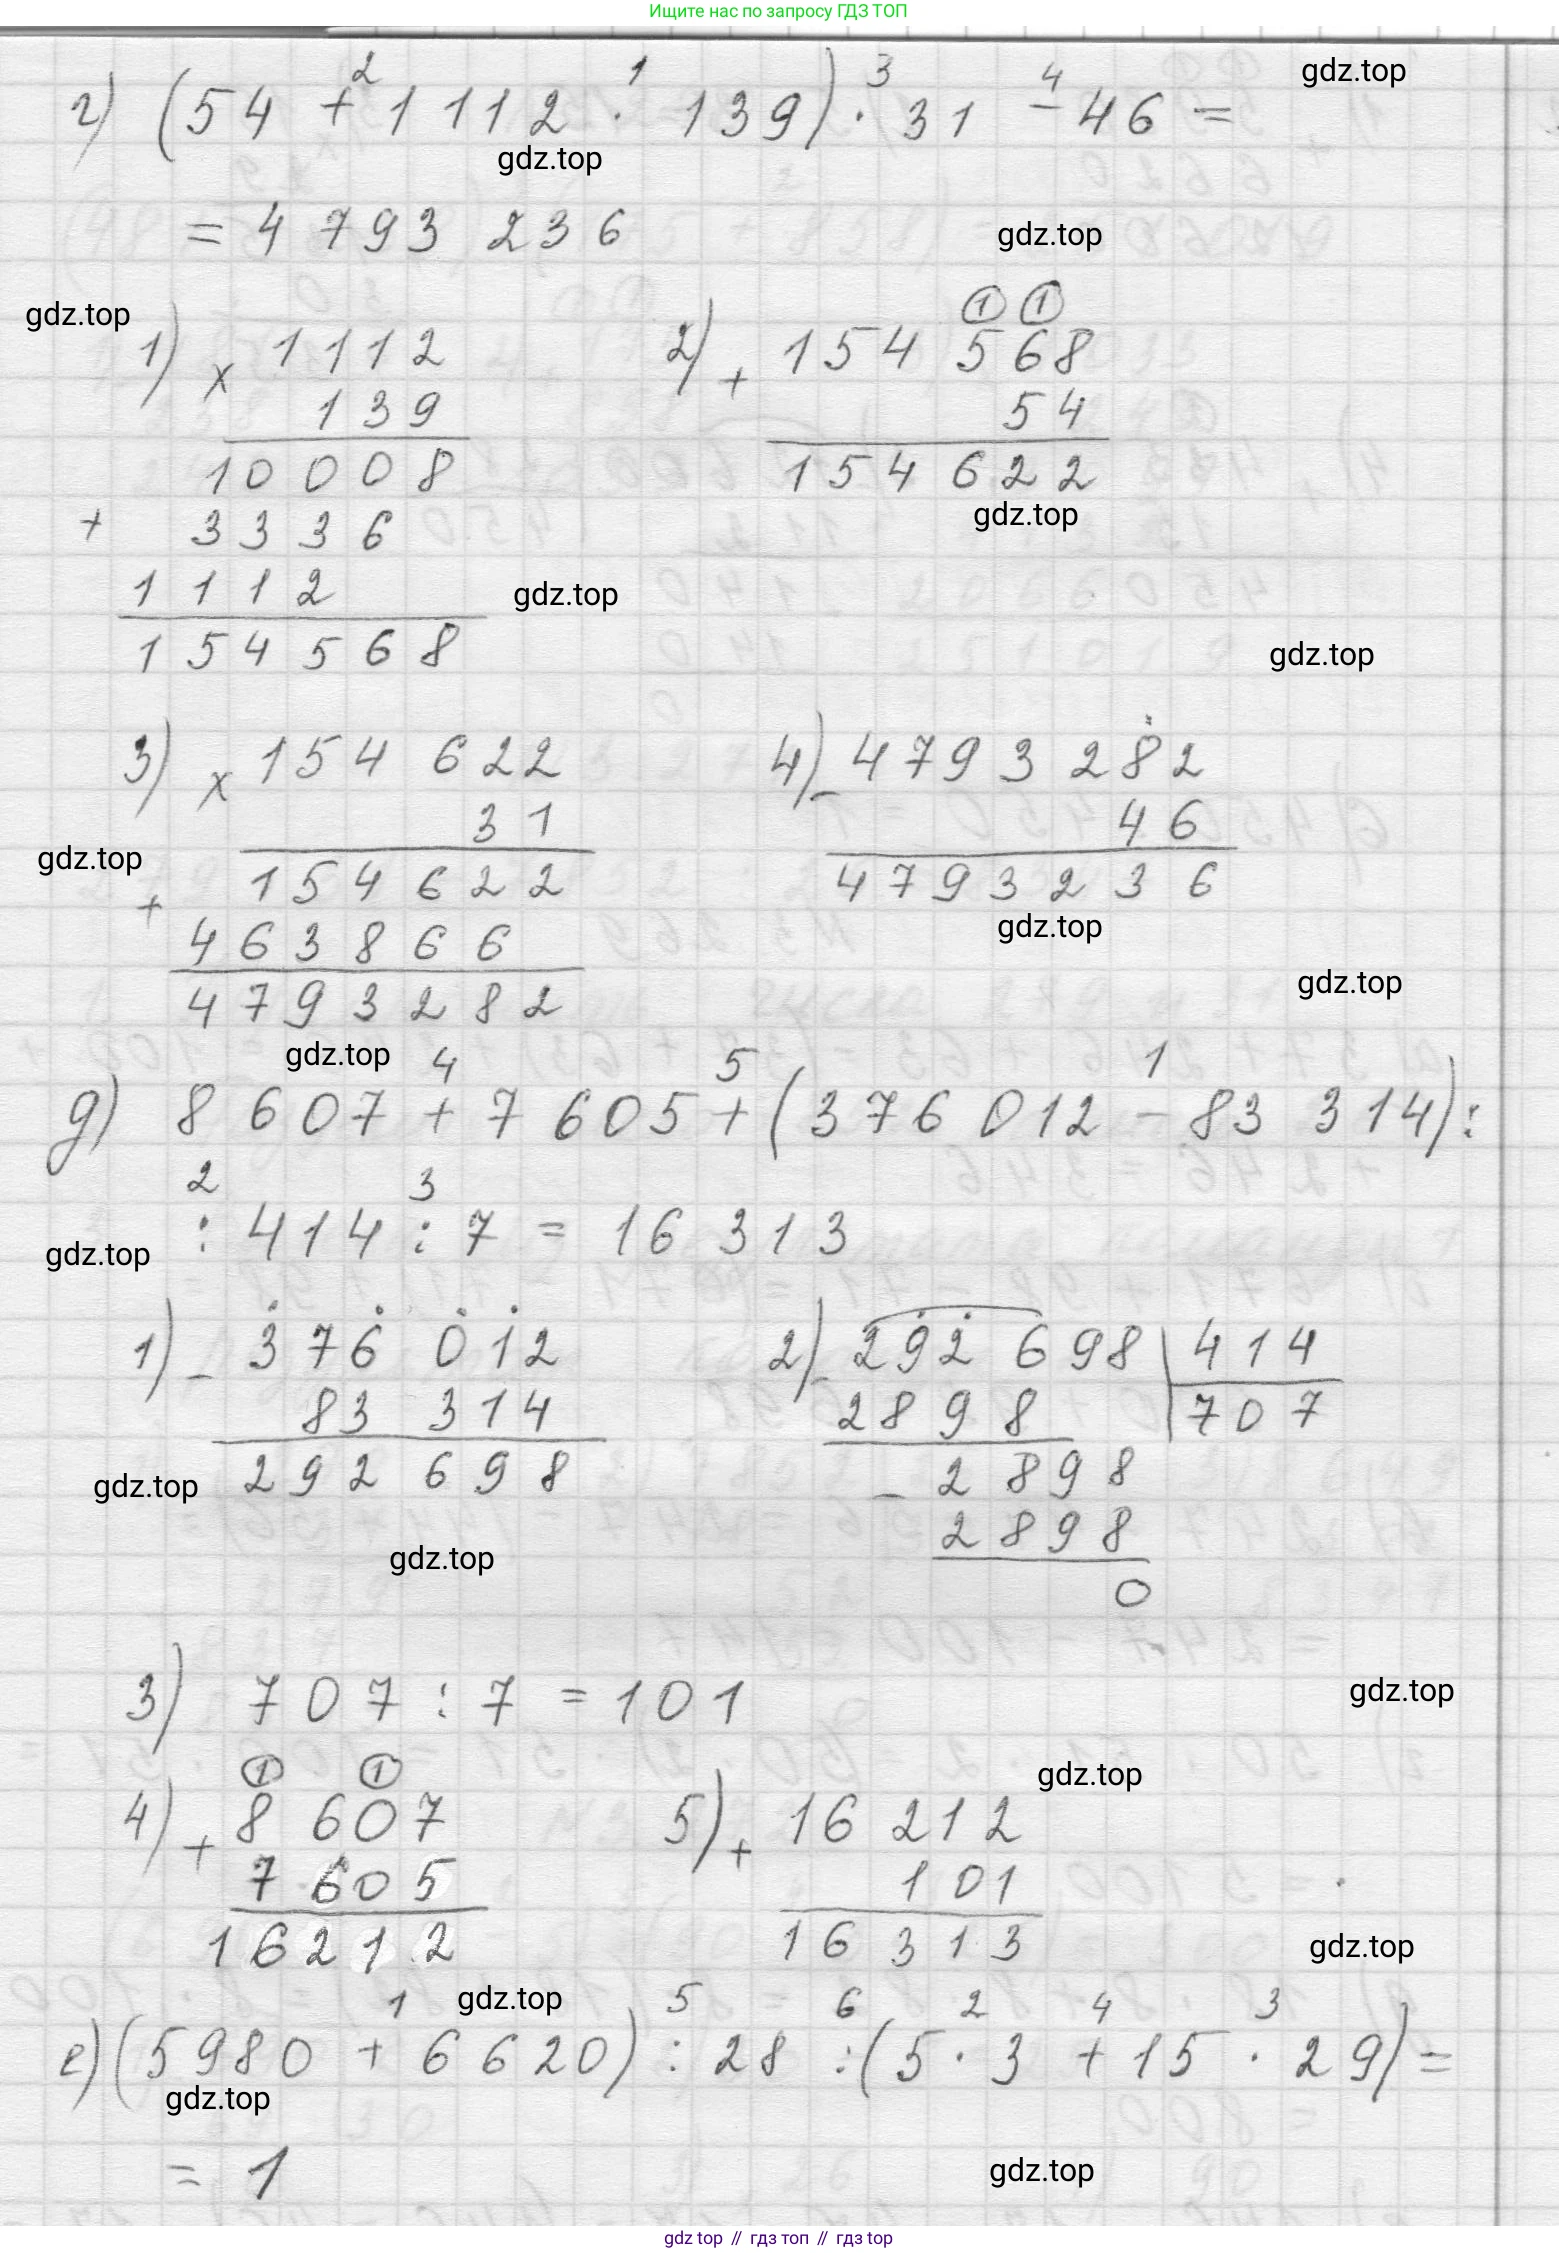 Ищите нас по запросу ГДЗ ТОП
gdz.top
г) (54 + 1112 · 139) · 31 - 46 =
2 1 3 4
gdz.top
= 4 793 236
gdz.top
gdz.top
1) x 1112
139
10008
+ 3336
1112
154568
2) + 154 568
1 1
54
154 622
gdz.top
gdz.top
gdz.top
3) x 154 622
31
154622
+ 463866
4793282
4) - 4793 282
46
4793236
gdz.top
gdz.top
gdz.top
gdz.top
4 5 1
д) 8 607 + 7 605 + (376 012 - 83 314) :
2 3
: 414 : 7 = 16 313
gdz.top
1) - 376 012
83 314
292 698
2) - 292 698 | 414
2898 707
- 2898
2898
0
gdz.top
gdz.top
3) 707 : 7 = 101
gdz.top
1 1
4) + 8 607
7 605
16212
gdz.top
5) + 16 212
101
16 313
gdz.top
gdz.top
1 5 6 2 4 3
е) (5980 + 6620) : 28 : (5 · 3 + 15 · 29) =
gdz.top
= 1
gdz.top
gdz top // гдз топ // гдз top